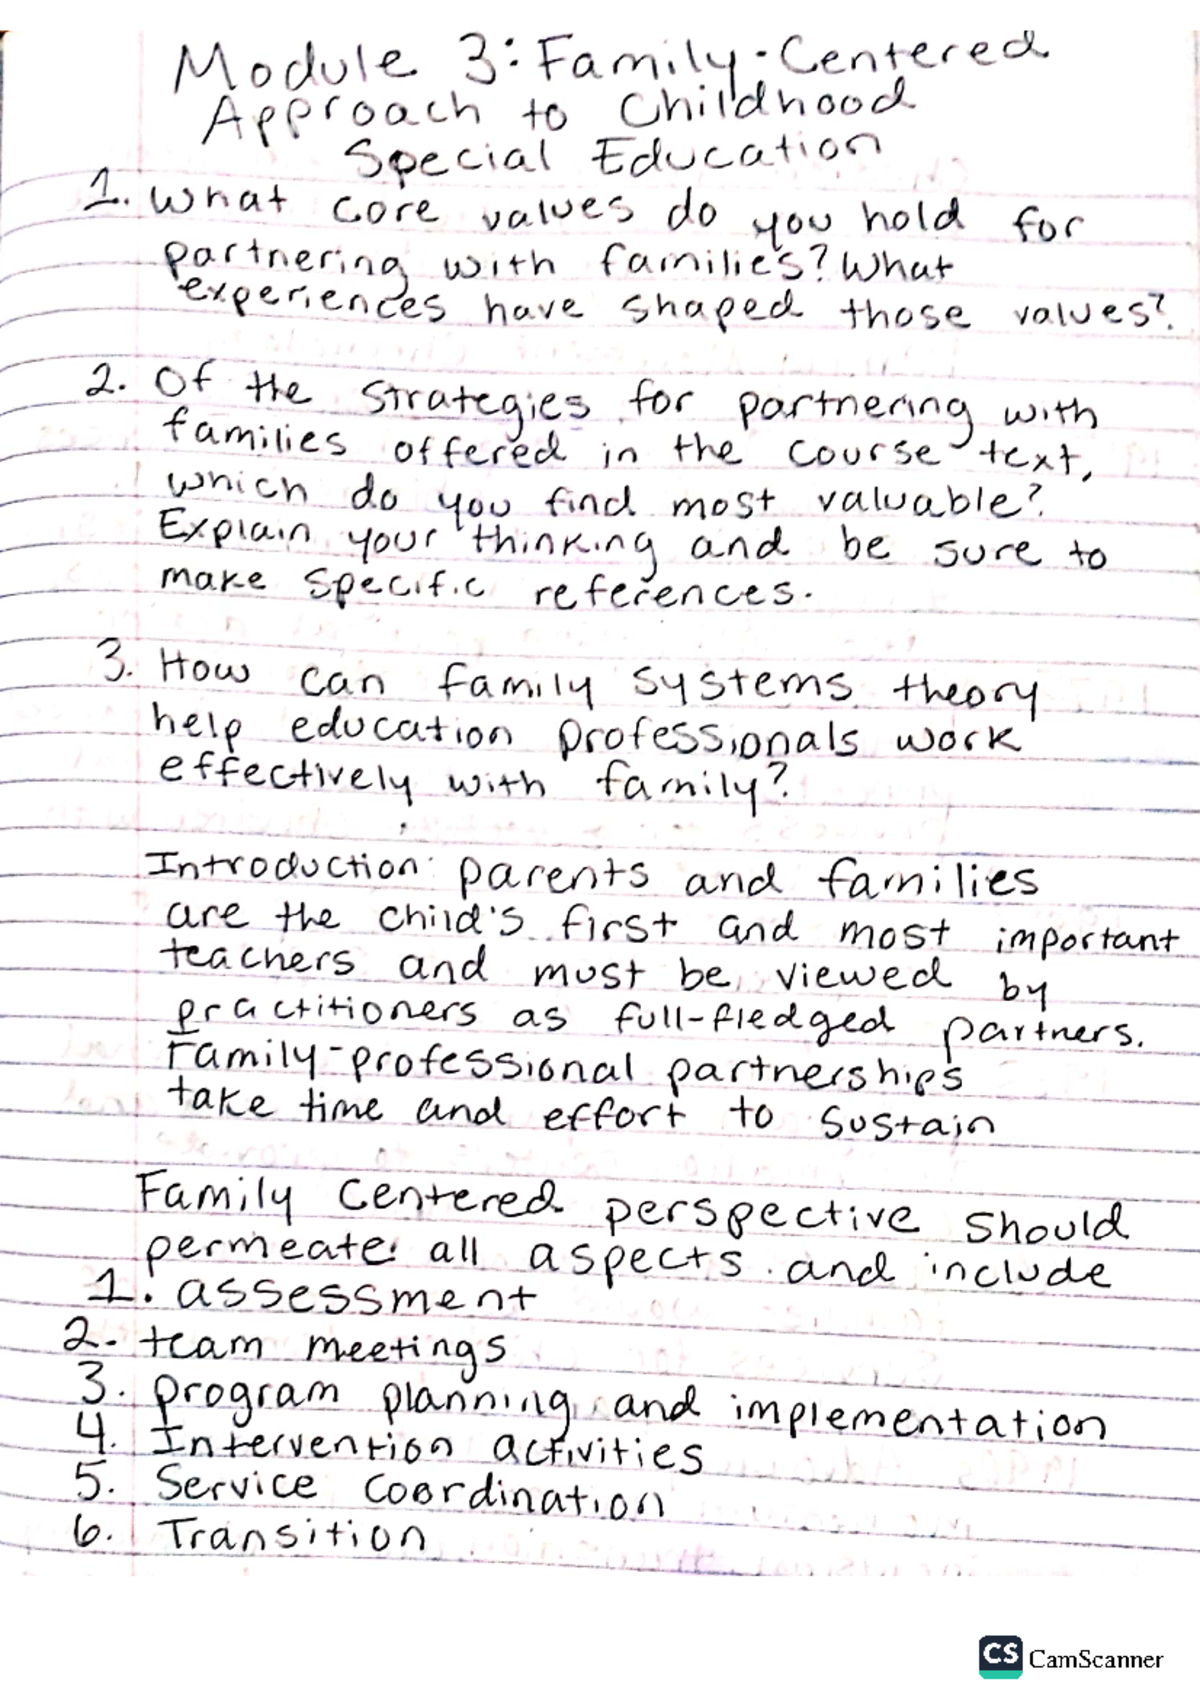 Module 3: Family-Centered
Approach to Childhood
Special Education
1. What core values do you hold for
partnering with families? What
experiences have shaped those values?
2. Of the strategies for partnering with
families offered in the course text,
which do you find most valuable?
Explain your thinking and be sure to
make specific references.
3. How can family systems theory
help education professionals work
effectively with family?
Introduction: parents and families
are the child's first and most important
teachers and must be viewed by
practitioners as full-fledged partners.
Family-professional partnerships
take time and effort to sustain
Family Centered perspective should
permeate all aspects and include
1. assessment
2. team meetings
3. program planning and implementation
4. Intervention activities
5. Service Coordination
6. Transition
CS CamScanner